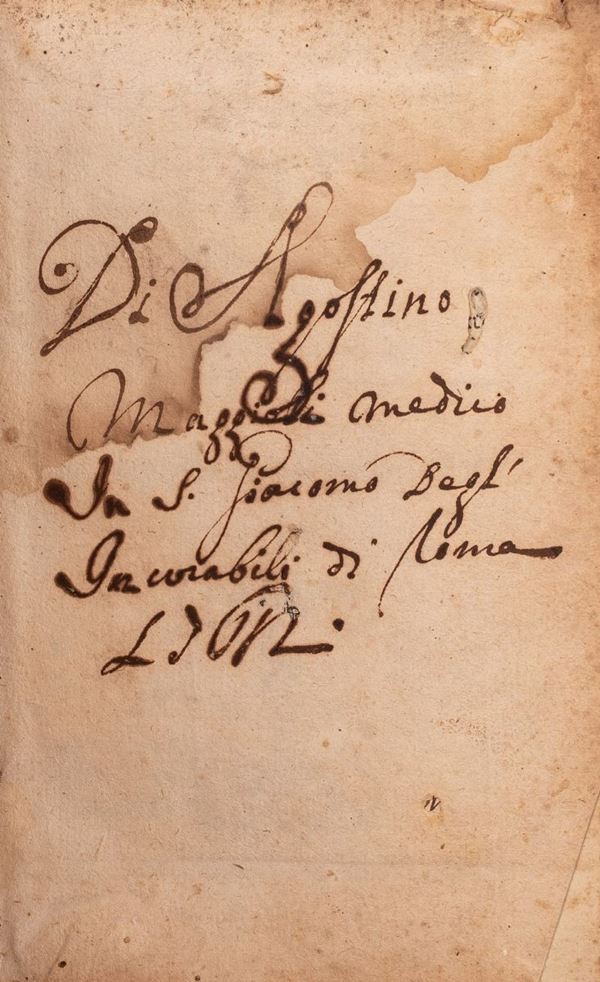 Di Agostino
medico
In S. Giacomo Degl'
Incurabili di Roma